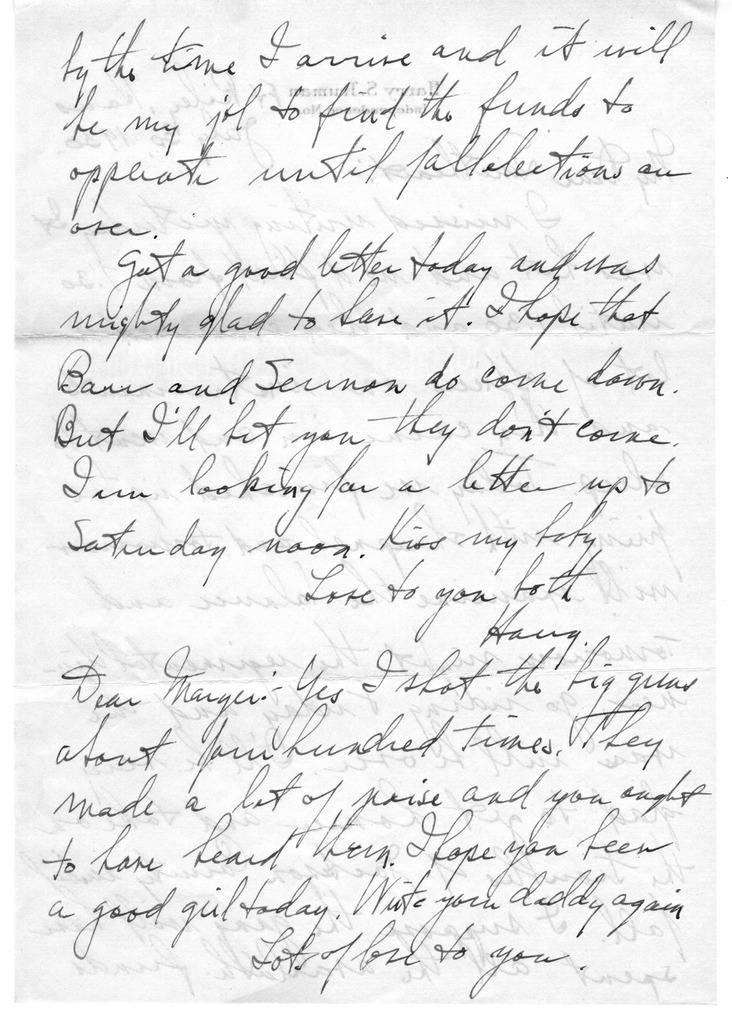 by the time I arrive and it will
be my job to find the funds to
opperate until fall elections are
over.
Got a good letter today and was
mighty glad to have it. I hope that
Barr and Sermon do come down.
But I'll bet you they don't come.
I am looking for a letter up to
Saturday noon. Kiss my baby
Love to you both
Harry.
Dear Margie:- Yes I shot the big guns
about four hundred times. They
made a lot of noise and you ought
to have heard them. I hope you been
a good girl today. Write your daddy again
Lots of love to you.